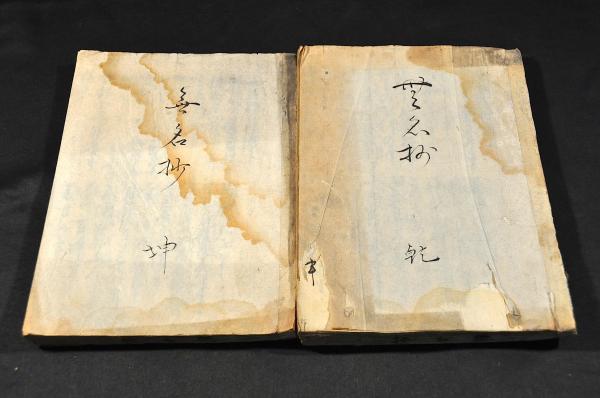 無名抄
乾
無名抄
坤